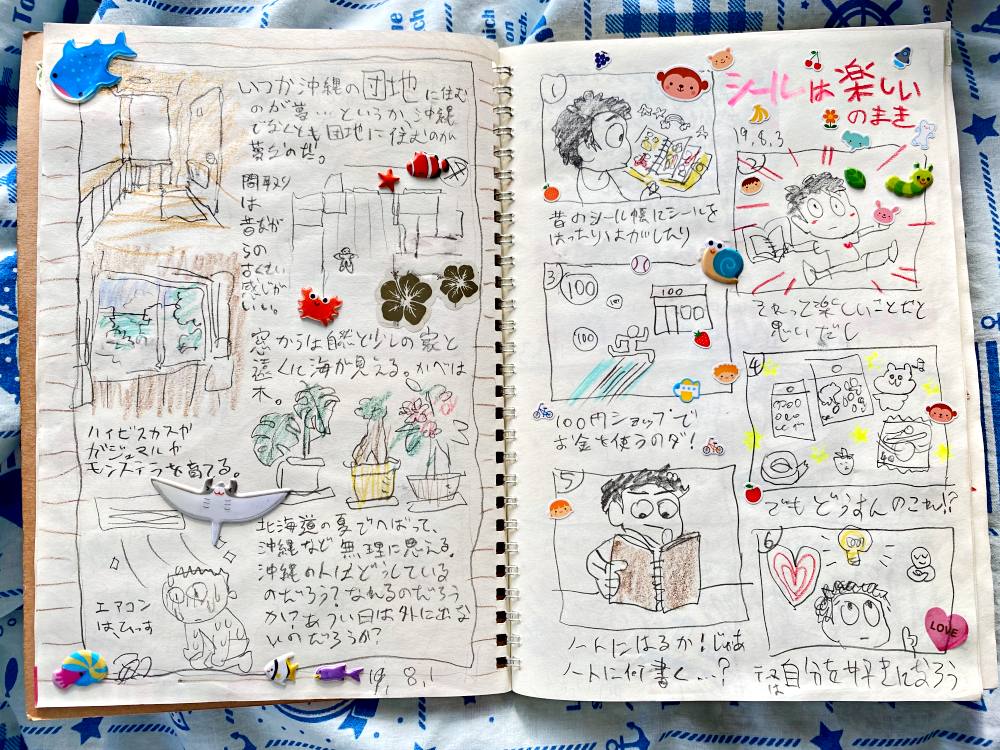 いつか沖縄の団地に住む
のが夢…というか、沖縄
でなくとも団地に住むのが
夢なのだ。
間取り
は
昔なが
らの
感じが
いい。
窓からは自然と少しの家と
遠くに海が見える。かべは
木。
ハイビスカスや
ガジュマルや
モンステラを育てる。
北海道の夏でへばって、
沖縄など無理に思える。
沖縄の人はどうしている
のだろう?なれるのだろう
か?あつい日は外に出な
いのだろうか?
エアコン
は、ひっす
19,8,1
シールは楽しい
のまき
19,8,3
1
昔のシール帳にシールを
はったりはがしたり
2
それって楽しいことだと
思いだし
3
100
100
100
100円ショップで
お金を使うのダ!
4
でもどうすんのこれ!?
5
ノートにはるか!じゃあ
ノートに何書く…?
6
LOVE
テーマは自分を好きになろう